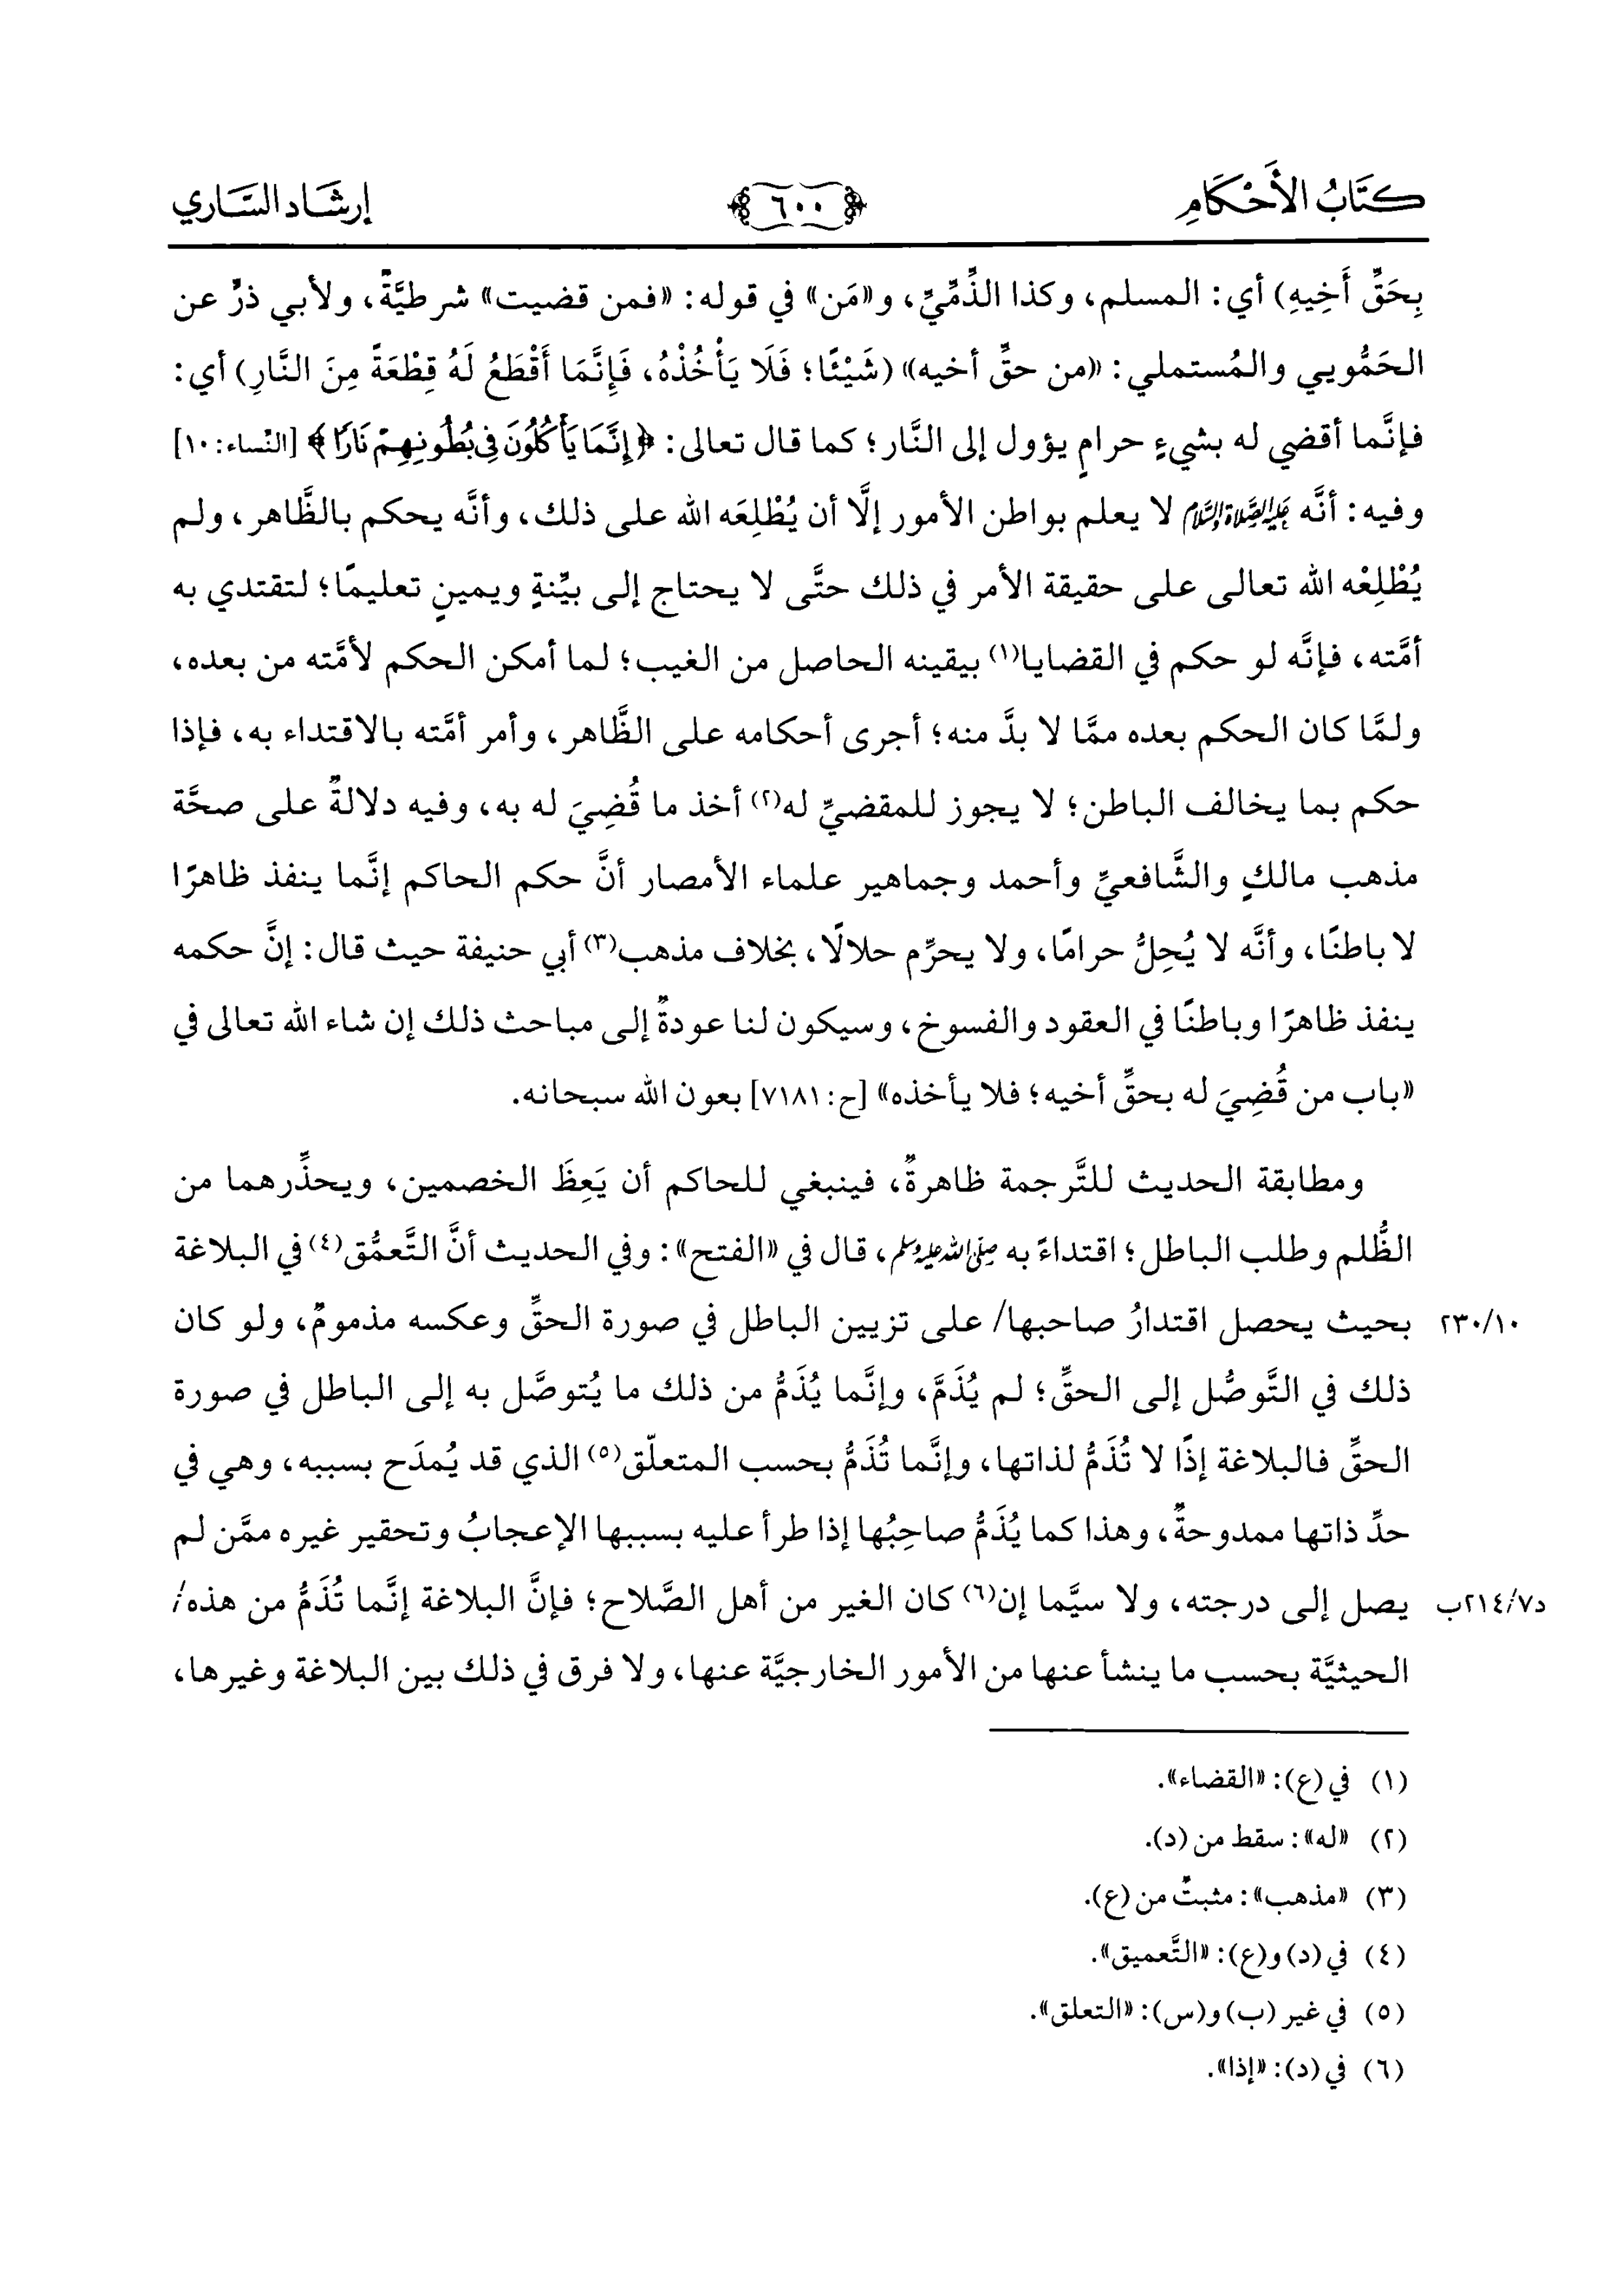 كِتَابُ الأَحْكَامِ ٦٠٠ إرشَاد السَّاري
بِحَقِّ أَخِيهِ) أي: المسلم، وكذا الذِّمِّيِّ، و«مَن» في قوله: «فمن قضيت» شرطيَّةٌ، ولأبي ذرٍّ عن
الحَمُّويي والمُستملي: «من حقِّ أخيه» (شَيْئًا؛ فَلَا يَأْخُذْهُ، فَإِنَّمَا أَقْطَعُ لَهُ قِطْعَةً مِنَ النَّارِ) أي:
فإنَّما أقضي له بشيءٍ حرامٍ يؤول إلى النَّار؛ كما قال تعالى: ﴿إِنَّمَا يَأْكُلُونَ فِي بُطُونِهِمْ نَارًا﴾ [النِّساء: ١٠]
وفيه: أنَّه عَلَيْهِ الصَّلَاة وَالسَّلَام لا يعلم بواطن الأمور إلَّا أن يُطْلِعَه الله على ذلك، وأنَّه يحكم بالظَّاهر، ولم
يُطْلِعْه الله تعالى على حقيقة الأمر في ذلك حتَّى لا يحتاج إلى بيِّنةٍ ويمينٍ تعليمًا؛ لتقتدي به
أمَّته، فإنَّه لو حكم في القضايا(١) بيقينه الحاصل من الغيب؛ لما أمكن الحكم لأمَّته من بعده،
ولمَّا كان الحكم بعده ممَّا لا بدَّ منه؛ أجرى أحكامه على الظَّاهر، وأمر أمَّته بالاقتداء به، فإذا
حكم بما يخالف الباطن؛ لا يجوز للمقضيِّ له(٢) أخذ ما قُضِيَ له به، وفيه دلالةٌ على صحَّة
مذهب مالكٍ والشَّافعيِّ وأحمد وجماهير علماء الأمصار أنَّ حكم الحاكم إنَّما ينفذ ظاهرًا
لا باطنًا، وأنَّه لا يُحِلُّ حرامًا، ولا يحرِّم حلالًا، بخلاف مذهب(٣) أبي حنيفة حيث قال: إنَّ حكمه
ينفذ ظاهرًا وباطنًا في العقود والفسوخ، وسيكون لنا عودةٌ إلى مباحث ذلك إن شاء الله تعالى في
«باب من قُضِيَ له بحقِّ أخيه؛ فلا يأخذه» [ح: ٧١٨١] بعون الله سبحانه.
ومطابقة الحديث للتَّرجمة ظاهرةٌ، فينبغي للحاكم أن يَعِظَ الخصمين، ويحذِّرهما من
الظُّلم وطلب الباطل؛ اقتداءً به صَلَّى الله عَلَيْهِ وَسَلَّم، قال في «الفتح»: وفي الحديث أنَّ التَّعمُّق(٤) في البلاغة
بحيث يحصل اقتدارُ صاحبها/ على تزيين الباطل في صورة الحقِّ وعكسه مذمومٌ، ولو كان ٢٣٠/١٠
ذلك في التَّوصُّل إلى الحقِّ؛ لم يُذَمَّ، وإنَّما يُذَمُّ من ذلك ما يُتوصَّل به إلى الباطل في صورة
الحقِّ فالبلاغة إذًا لا تُذَمُّ لذاتها، وإنَّما تُذَمُّ بحسب المتعلّق(٥) الذي قد يُمدَح بسببه، وهي في
حدِّ ذاتها ممدوحةٌ، وهذا كما يُذَمُّ صاحِبُها إذا طرأ عليه بسببها الإعجابُ وتحقير غيره ممَّن لم
يصل إلى درجته، ولا سيَّما إن(٦) كان الغير من أهل الصَّلاح؛ فإنَّ البلاغة إنَّما تُذَمُّ من هذه/ د٢١٤/٧ب
الحيثيَّة بحسب ما ينشأ عنها من الأمور الخارجيَّة عنها، ولا فرق في ذلك بين البلاغة وغيرها،
(١) في (ع): «القضاء».
(٢) «له»: سقط من (د).
(٣) «مذهب»: مثبتٌ من (ع).
(٤) في (د) و(ع): «التَّعميق».
(٥) في غير (ب) و(س): «التعلق».
(٦) في (د): «إذا».